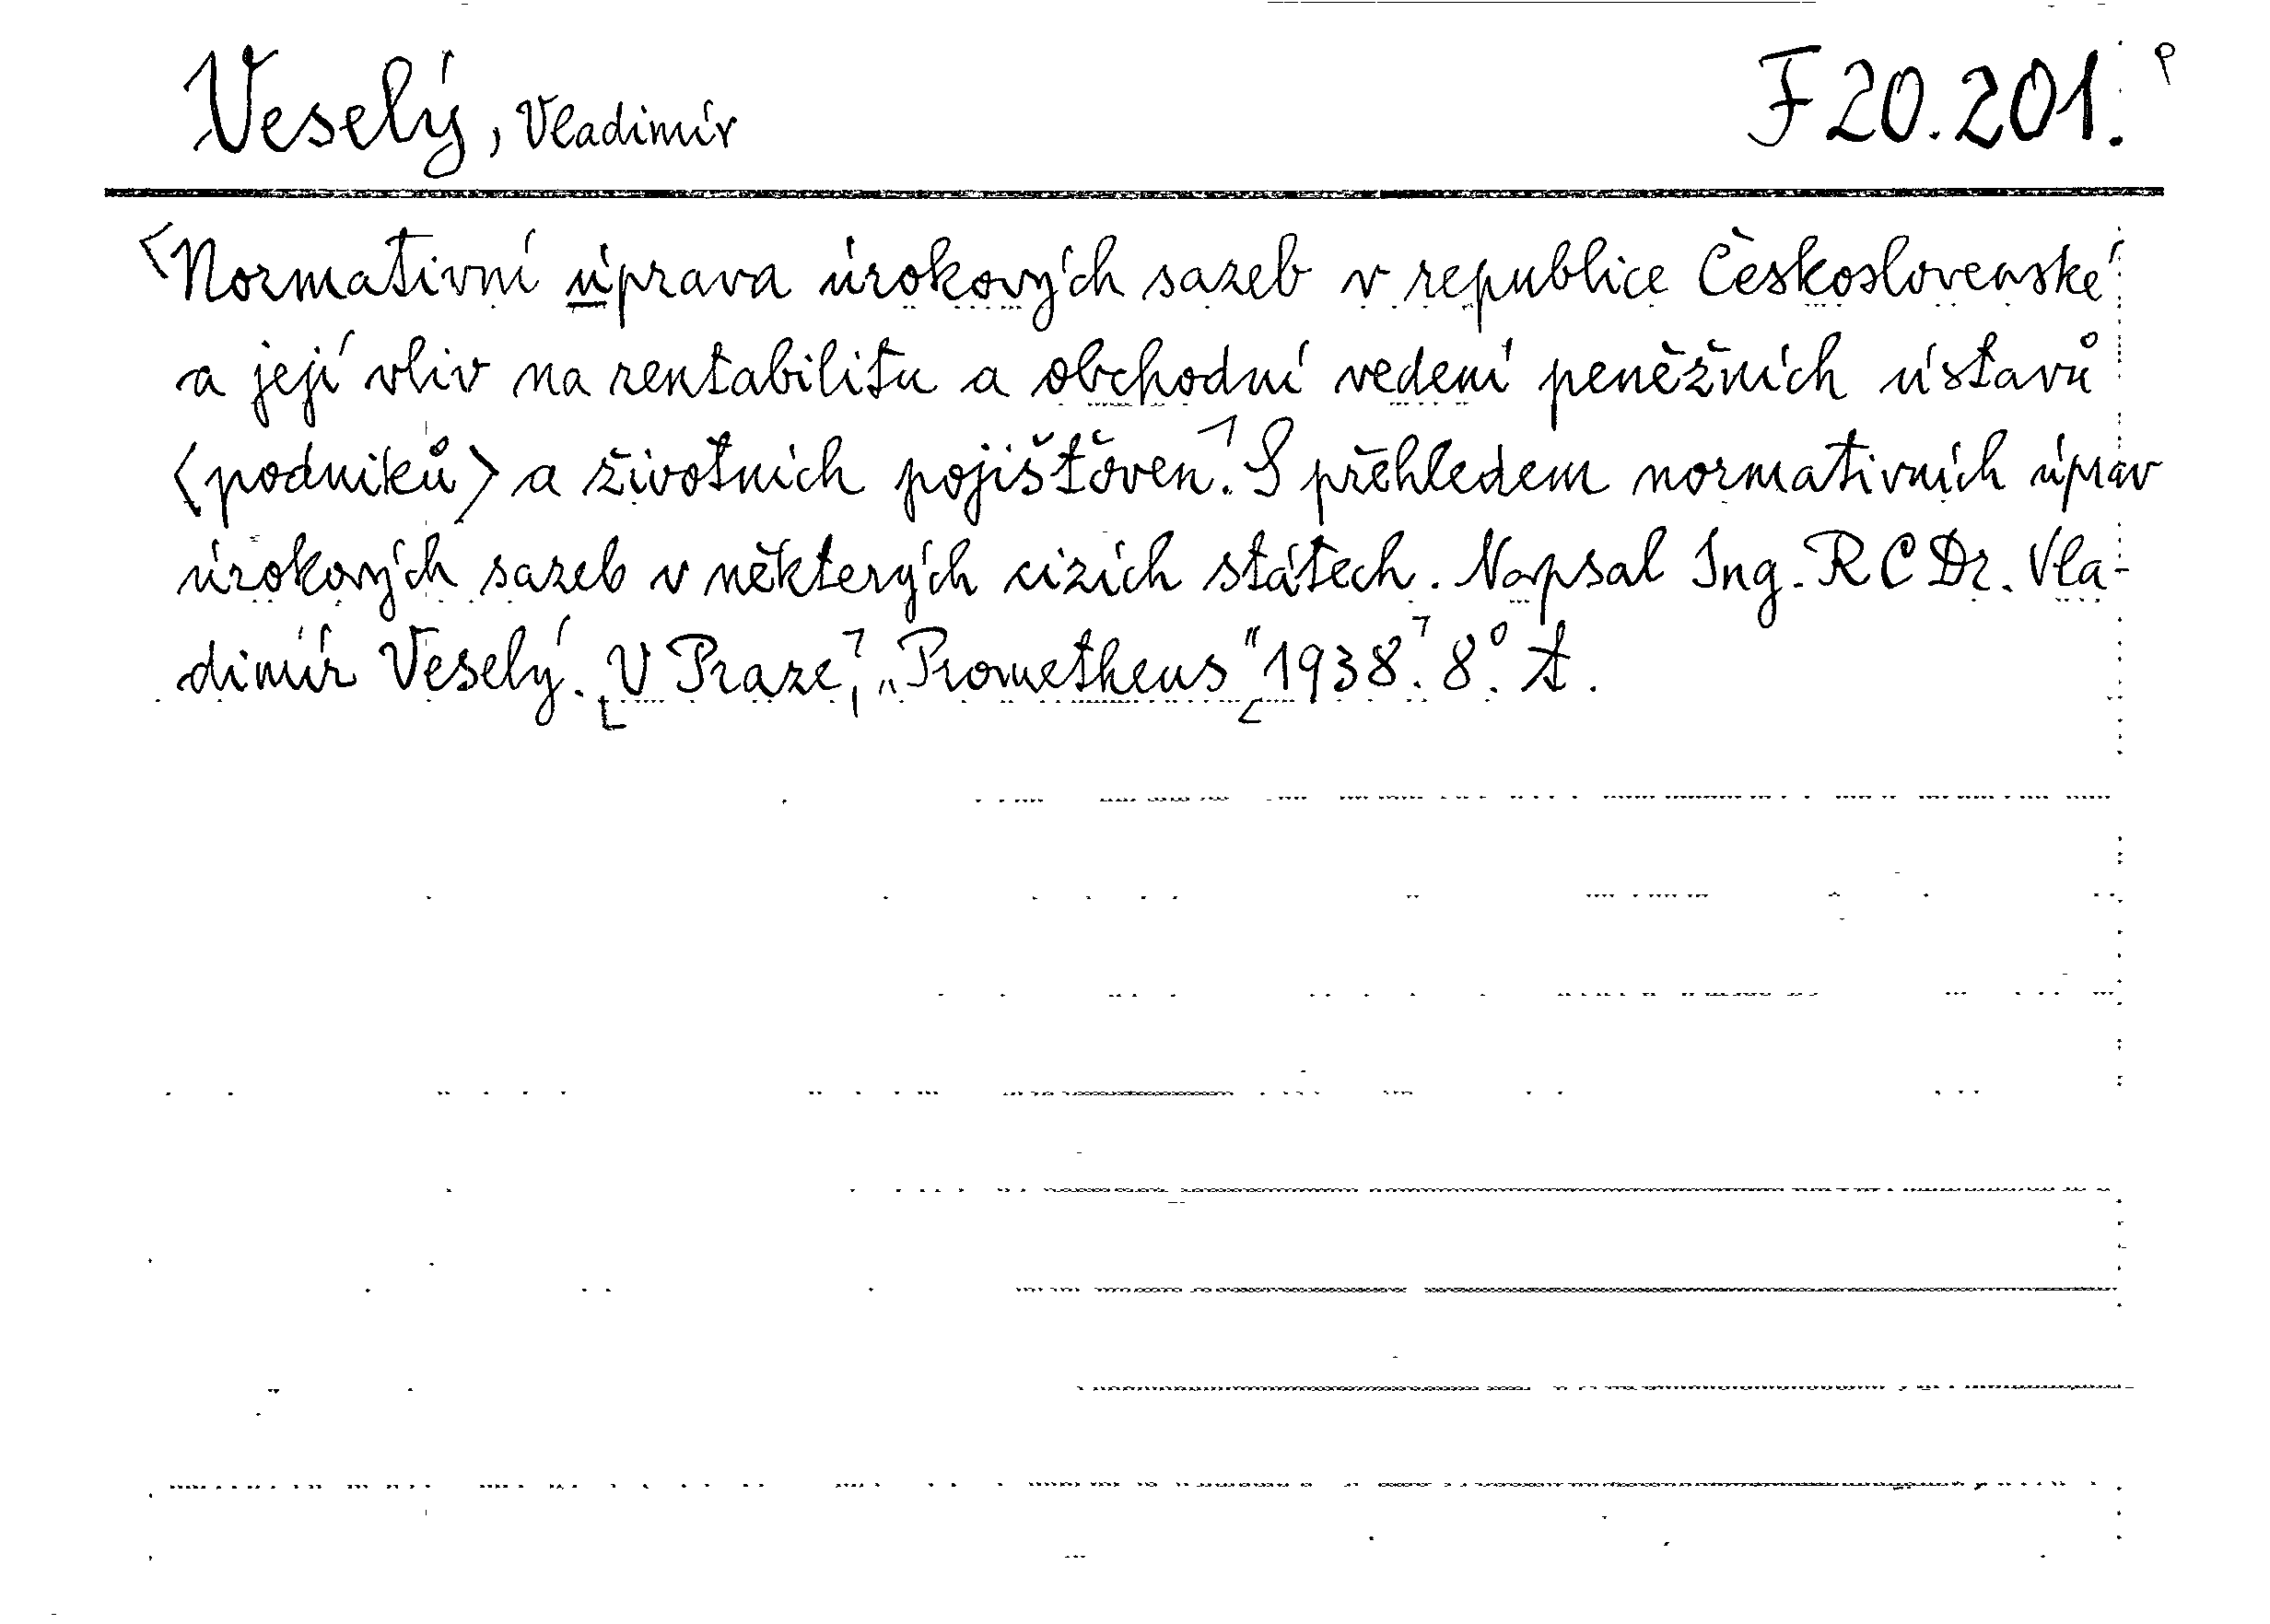 Veselý, Vladimír F 20.201.
Normativní úprava úrokových sazeb v republice Československé
a její vliv na rentabilitu a obchodní vedení peněžních ústavů
<podniků> a životních pojišťoven. S přehledem normativních úprav
úrokových sazeb v některých cizích státech. Napsal Ing. R C Dr. Vla-
dimír Veselý. V Praze, „Prometheus" 1938. 8°. A.